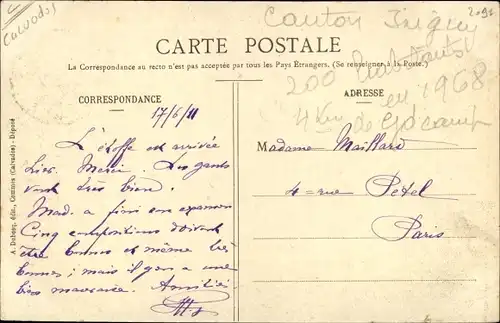 Calvados
2091
Canton Isigny
CARTE POSTALE
La Correspondance au recto n'est pas acceptée par tous les Pays Étrangers. (Se renseigner à la Poste.)
200 habitants
en 1968
4 km de
CORRESPONDANCE
ADRESSE
17/6/11
L'étoffe est arrivée
hier. Merci. Les gants
vont très bien.
Mad. a fini son examen
Cinq compositions doivent
être bonnes et même très
bonnes; mais il y en a une
bien mauvaise. Amitiés
Madame Maillard
4 rue Petel
Paris